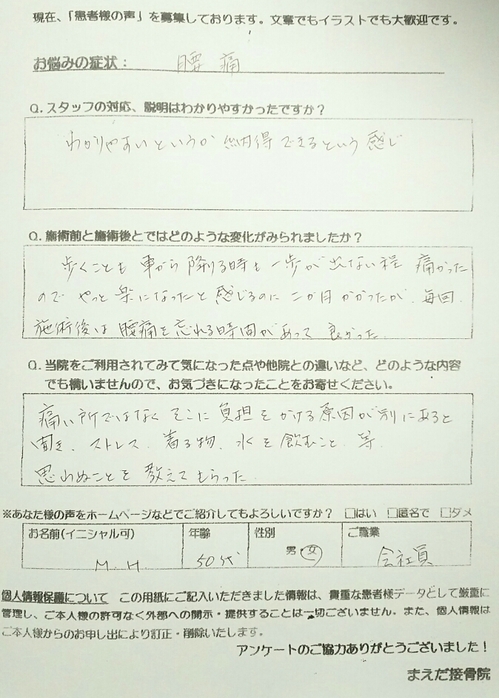 現在、「患者様の声」を募集しております。文章でもイラストでも大歓迎です。
お悩みの症状： 腰痛
Q. スタッフの対応、説明はわかりやすかったですか？
わかりやすいというか 納得できるという感じ
Q. 施術前と施術後とではどのような変化がみられましたか？
歩くことも 車から降りる時も 一歩が出ない程 痛かった
ので やっと楽になったと感じるのに 二か月かかったが、毎回
施術後は 腰痛を忘れる時間があって 良かった
Q. 当院をご利用されてみて気になった点や他院との違いなど、どのような内容
でも構いませんので、お気づきになったことをお寄せください。
痛い所ではなく そこに負担をかける原因が別にあると
聞き、ストレス、着る物、水を飲むこと 等
思わぬことを教えてもらった
※あなた様の声をホームページなどでご紹介してもよろしいですか？ □はい □匿名で □ダメ
お名前(イニシャル可) 年齢 性別 ご職業
M. H 50代 男・女 会社員
個人情報保護について この用紙にご記入いただきました情報は、貴重な患者様データとして厳重に
管理し、ご本人様の許可なく外部への開示・提供することは一切ございません。また、個人情報は
ご本人様からのお申し出により訂正・削除いたします。
アンケートのご協力ありがとうございました！
まえだ接骨院